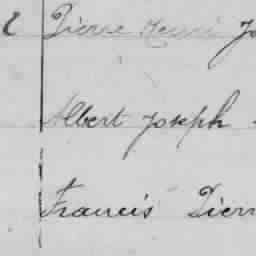 2 Pierre Henri Jo
Albert Joseph
Francis Pierr